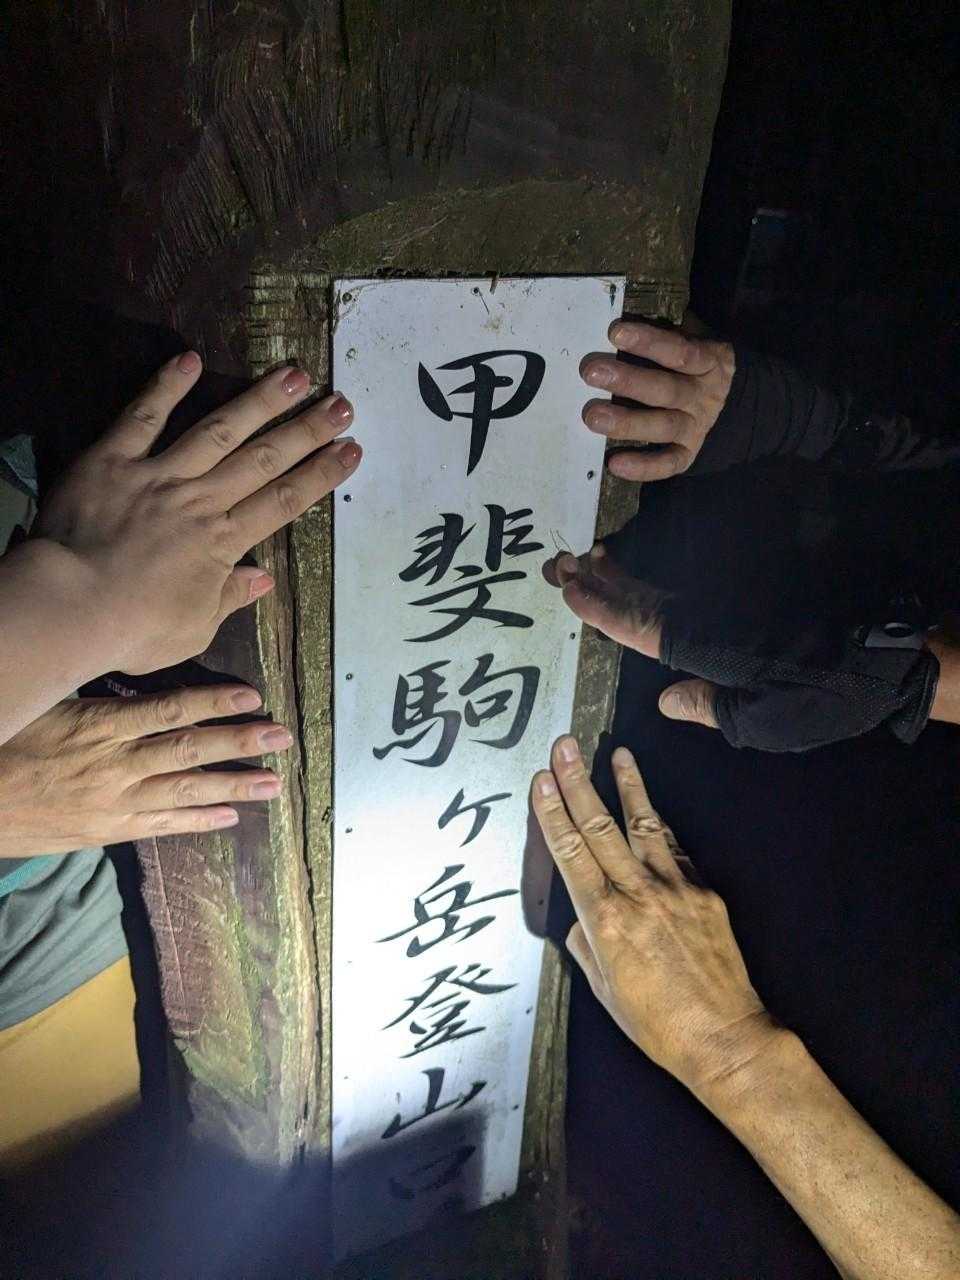 甲斐駒ヶ岳登山口